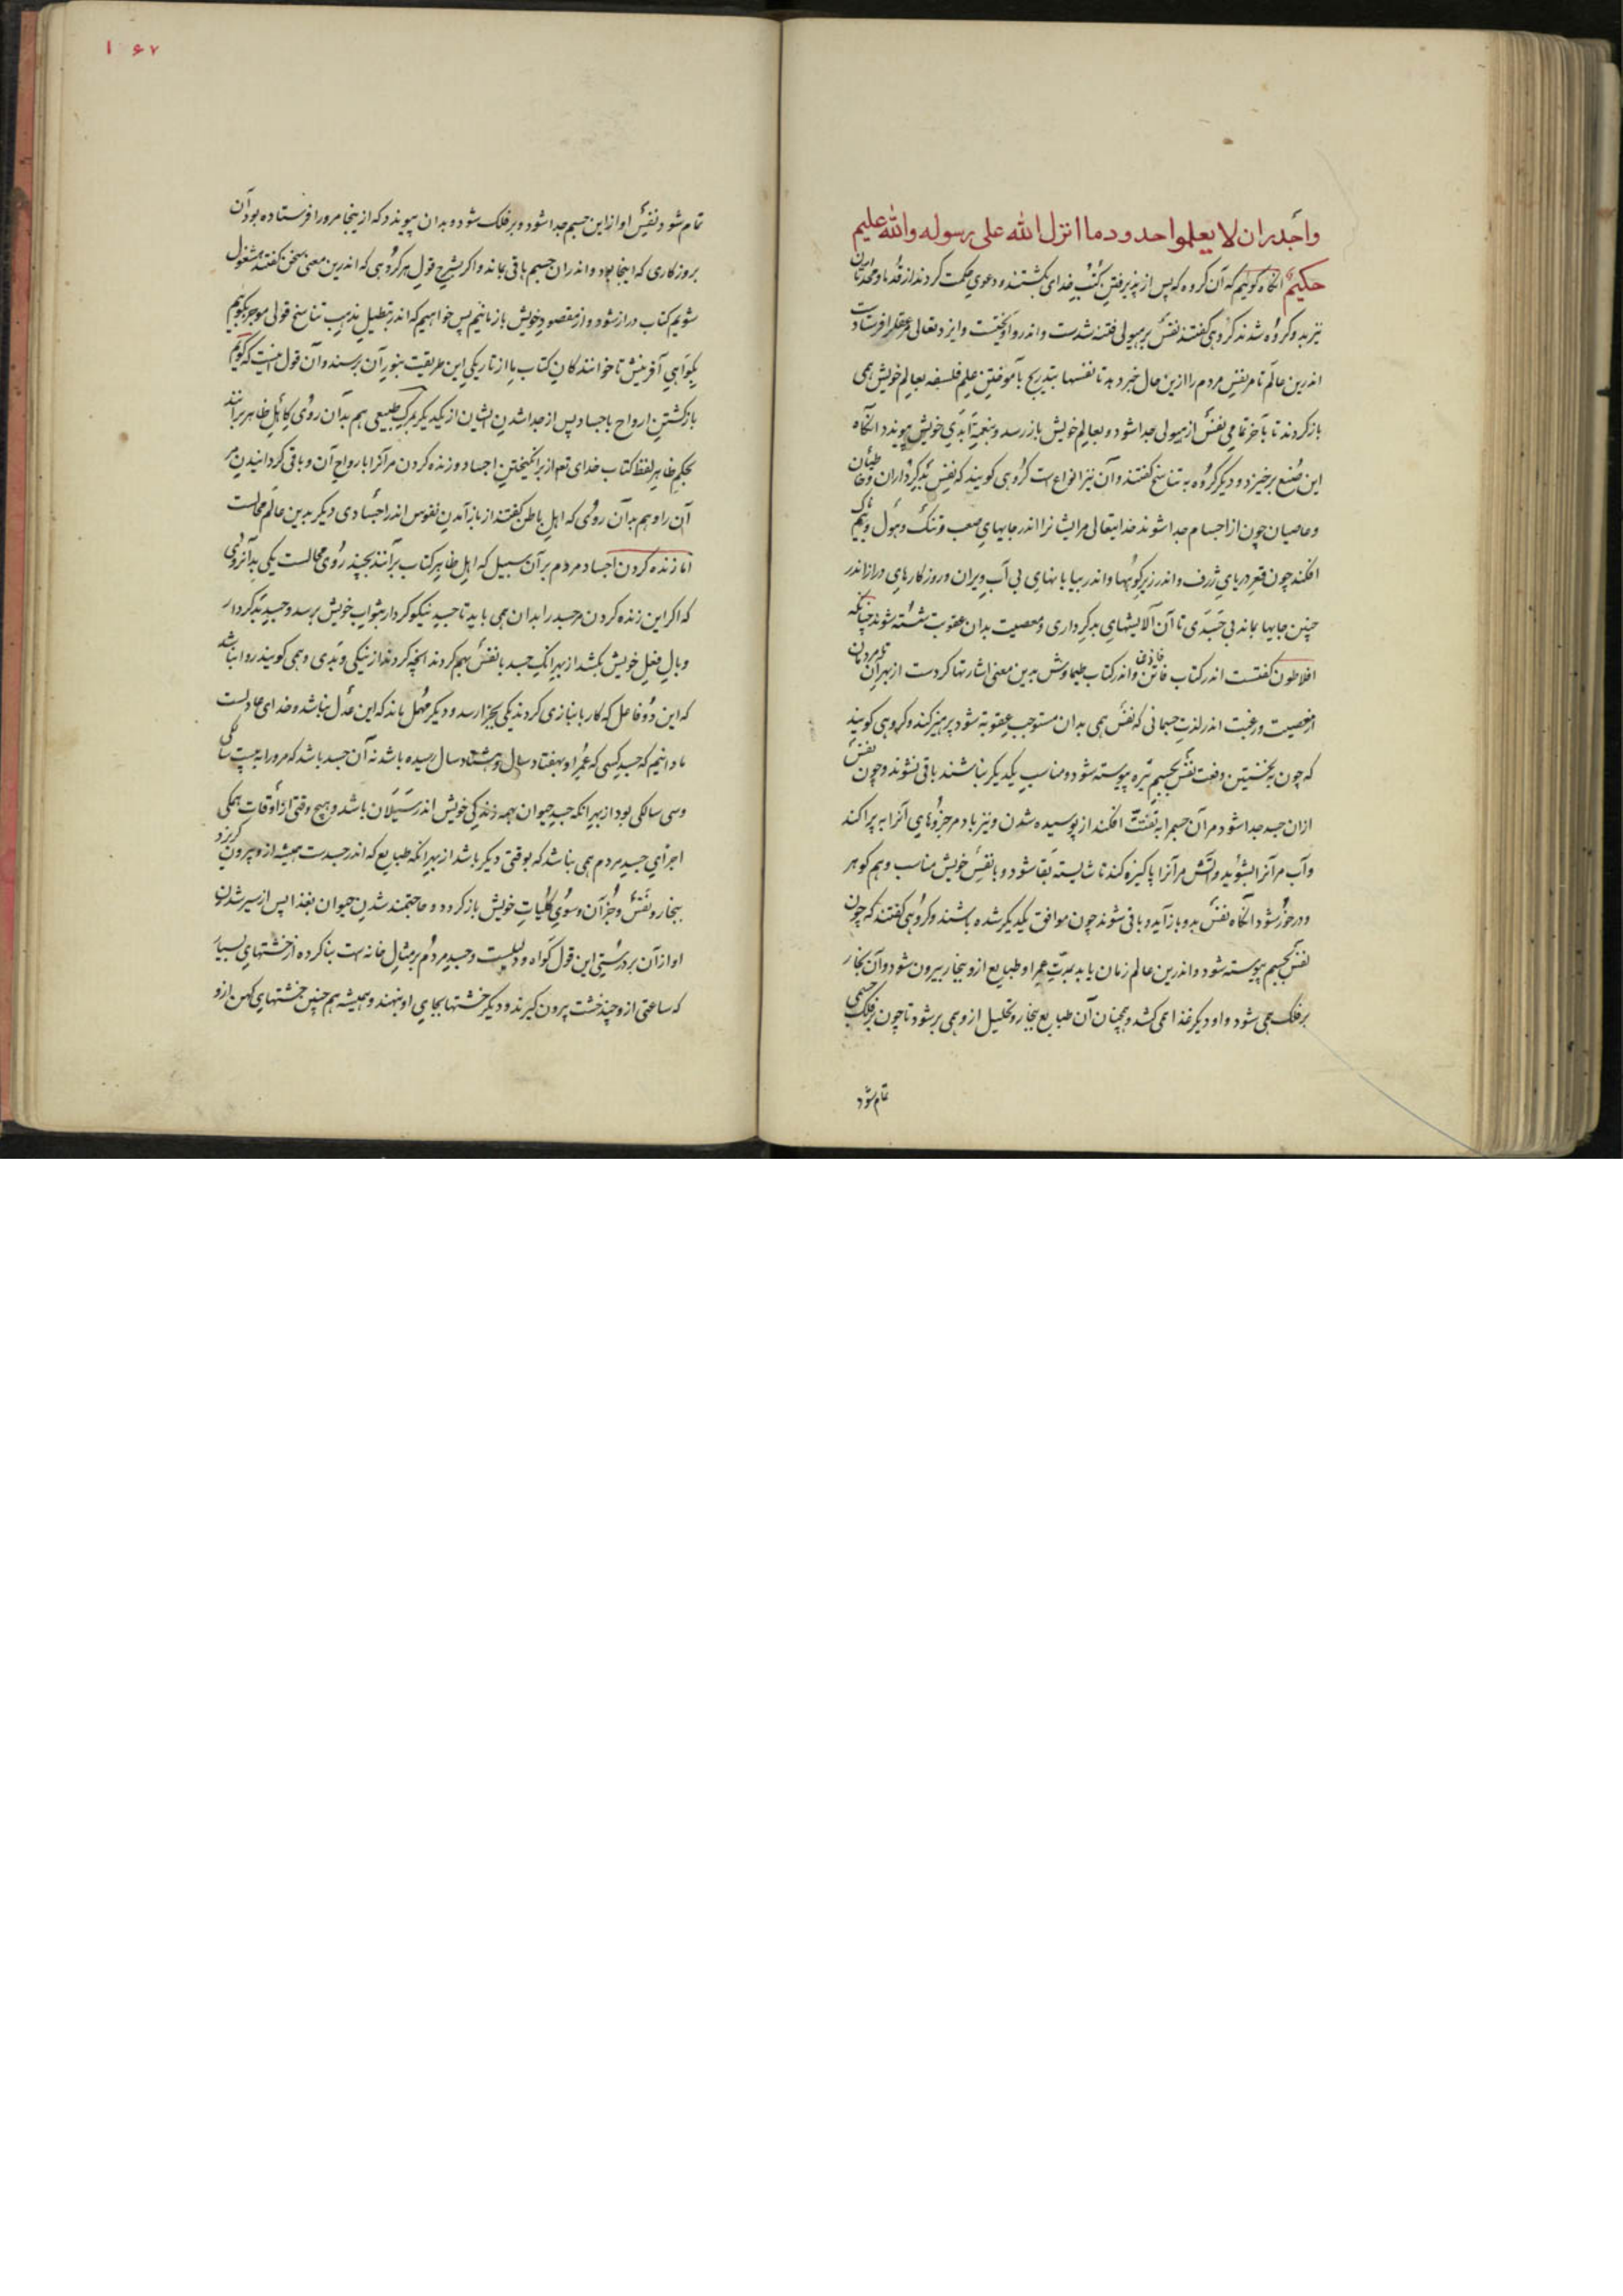 واجدر ان لا یعلموا حدود ما انزل الله علی رسوله والله علیم
حکیم آنگاه گوئیم که آن گروه که پس از پذیرفتن کتب خدای بگشتند و دعوی حکمت کردند از قدما و محدثان
نیز بدو گروه شدند گروهی گفتند نفس بر هیولی فتنه شدست و اندرو آویخت و ایزد تعالی مر عقل را فرستاد
اندرین عالم تا مر نفس مردم را ازین حال خبر دهد تا نفسها بتدریج بآموختن علم فلسفه بعالم خویش همی
بازگردند تا بآخر تمامی نفس از هیولی جدا شود و بعالم خویش باز رسد و بنعمت ابدی خویش پیوندد آنگاه
این صنع برخیزد و دیگر گروه به تناسخ گفتند و آن نیز انواع است گروهی گویند که نفس بدکرداران
و عاصیان چون از اجسام جدا شوند خدایتعالی مرایشانرا اندر جایهای صعب و تنگ و هول و بیم
افکند چون قعر دریای ژرف و اندر زیر کوهها و اندر بیابانهای بی آب ویران و روزگارهای دراز اندر
چنین جایها بماند بی جسدی تا آن آلایشهای بدکرداری و معصیت بدان عقوبت شسته شوند چنانکه
افلاطون گفتست اندر کتاب فاتن و اندر کتاب طیماوش بدین معنی اشارتها کردست از بهر آن تا مردمان
از معصیت و رغبت اندر لذت جسمانی که نفس همی بدان مستوجب عقوبت شود پرهیز کنند و گروهی گویند
که چون به نخستین دفعت نفس بجسم تیره پیوسته شود و مناسب یکدیگر نباشند باقی نشوند و چون نفس
ازان جسد جدا شود مر آن جسم را به تفتت افکند از پوسیده شدن و نیز باد مر جزوهای آنرا به پراکند
و آب مر آنرا بشوید و آتش مر آنرا پاکیزه کند تا شایسته بقا شود و با نفس خویش مناسب و هم گوهر
و درخور شود آنگاه نفس بدو باز آید و باقی شوند چون موافق یکدیگر شده باشند و گروهی گفتند که چون
نفس بجسم پیوسته شود و اندرین عالم زمان یابد بمدت عمر او طبایع ازو ببخار بیرون شود و آن بخار
بر فلک همی شود و او دیگر غذا همی کشد و همچنان آن طبایع ببخار و تحلیل ازو همی بر شود تا چون بر فلک جسمی
تمام شود
۱۶۷
تمام شود نفس او از این جسم جدا شود و بر فلک شود و بدان پیوندد که ازینجا مرورا فرستاده بود آن
بروزگاری که اینجا بود و اندران جسم باقی بماند و اگر بشرح قول هر گروهی که اندرین معنی سخن گفتند مشغول
شویم کتاب دراز شود و از مقصود خویش باز مانیم پس خواهیم که اندر تبطیل مذهب تناسخ قولی موجز بگوییم
بگواهی آفرینش تا خوانندگان کتاب ما از تاریکی این طریقت بنور آن برسند و آن قول اینست که گوئیم
بازگشتن ارواح باجساد پس از جدا شدن ایشان از یکدیگر بمرگ طبیعی هم بدان روی که اهل ظاهر برانند
بحکم ظاهر لفظ کتاب خدای تعم از برانگیختن اجساد و زنده کردن مر آنرا بارواح آن و باقی گردانیدن مر
آن را و هم بدان روی که اهل باطن گفتند از باز آمدن نفوس اندر اجسادی دیگر بدین عالم محالست
اما زنده کردن اجساد مردم بر آن سبیل که اهل ظاهر کتاب بر آنند بچند روی محالست یکی بدانروی
که اگر این زنده کردن مر جسد را بدان همی باید تا جسد نیکوکردار بثواب خویش برسد و جسد بدکردار
وبال فعل خویش بکشد از بهر آنک جسد با نفس بهم کردند آنچه کردند از نیکی و بدی و همی گویند روا نباشد
که این دو فاعل که کار بانبازی کردند یکی بجزا رسد و دیگر مهمل ماند که این عدل نباشد و خدای عادلست
ما دانیم که جسد کسی که عمر او بهفتاد سال و هشتاد سال رسیده باشد نه آن جسد باشد که مرورا به بیست سالگی
و سی سالگی بود از بهر آنکه جسد حیوان بهمه زندگی خویش اندر سیلان باشد و هیچ وقتی از اوقات همگی
اجزای جسد مردم همی نباشد که بوقتی دیگر باشد از بهر آنکه طبایع که اندر جسدست همیشه ازو بیرون گریزد
ببخار و نفس و جز آن و سوی کلیات خویش باز گردد و حاجتمند شدن حیوان بغذا پس از سیر شدن
او از آن بر درستی این قول گواه و دلیلست و جسد مردم بر مثال خانه ست بنا کرده از خشتهای بسیار
که ساعتی ازو چند خشت بیرون گیرند و دیگر خشتها بجای او بنهند و همیشه هم چنین خشتهای کهن ازو